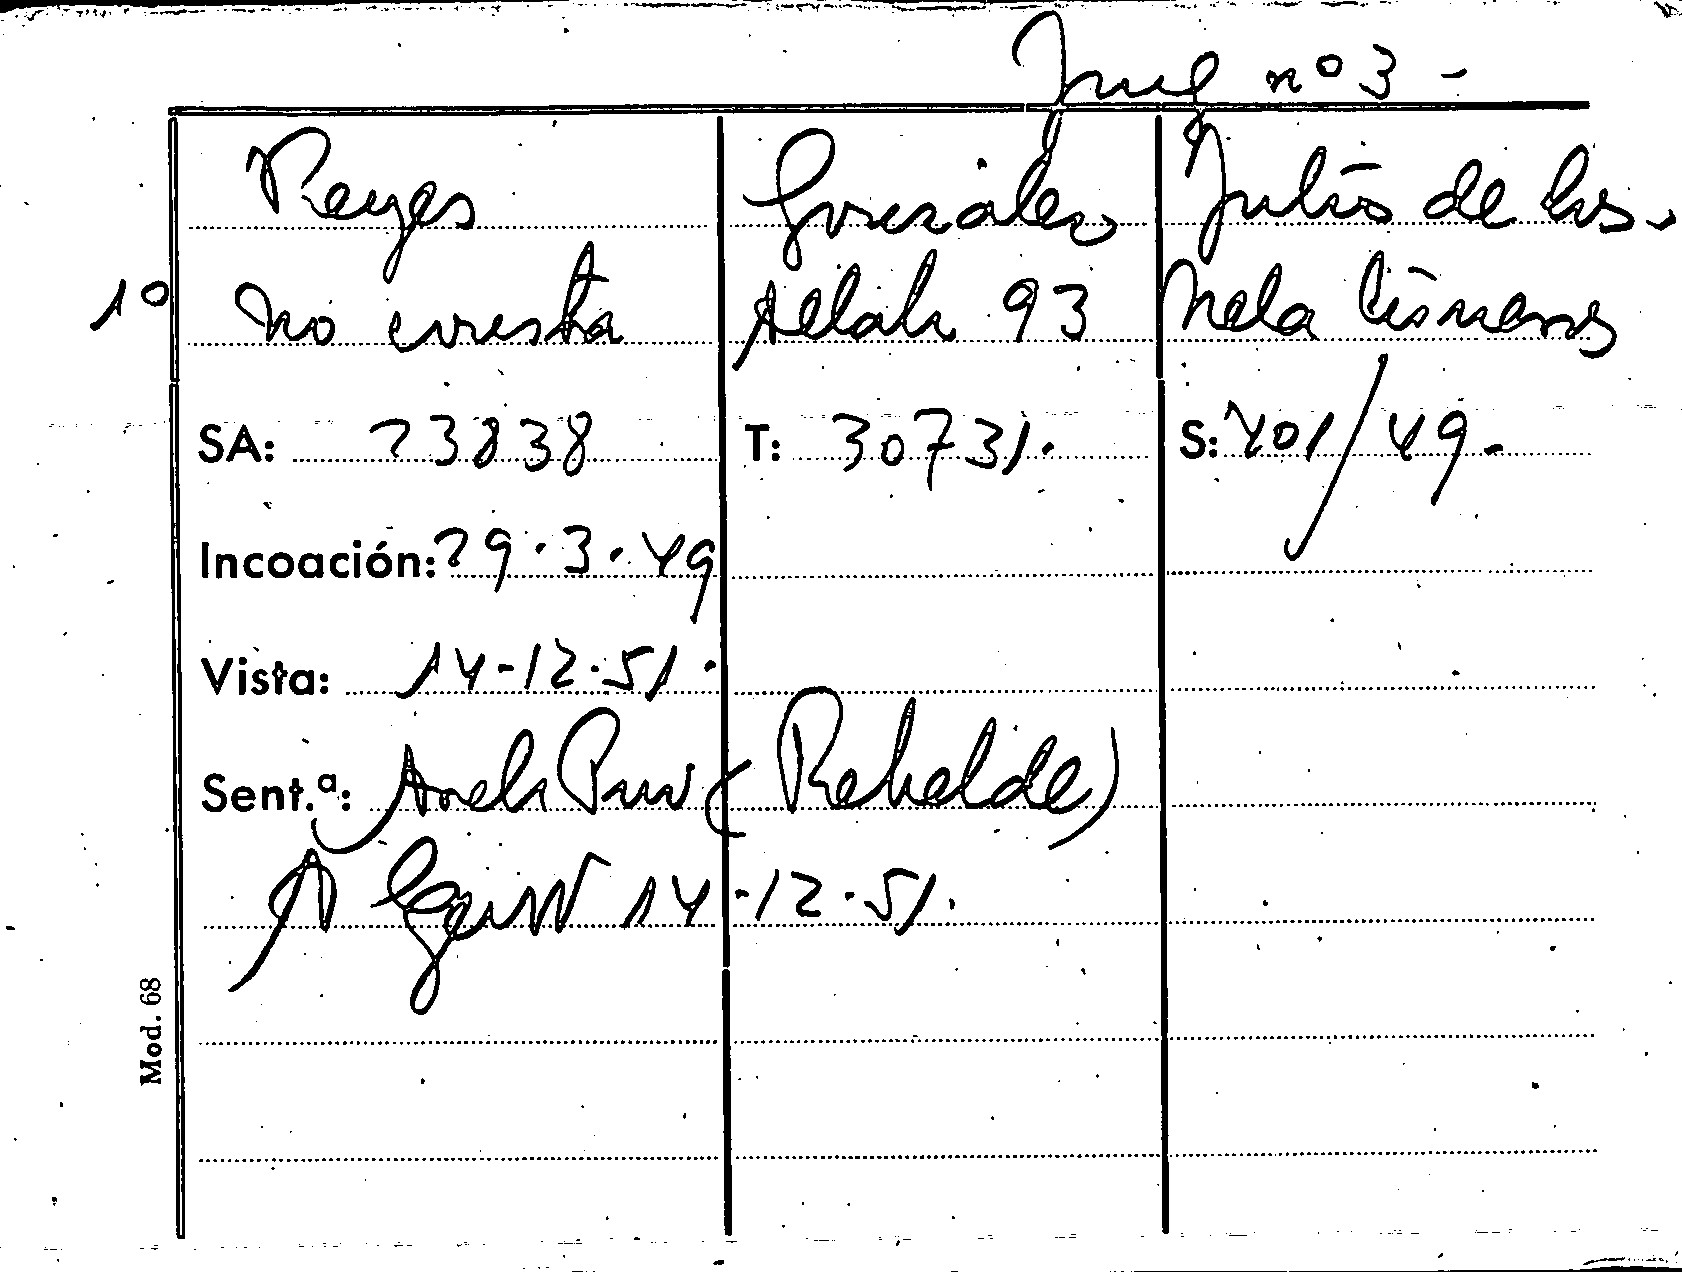 Juzg nº 3 -
Reyes Gonzalez Julio de los.
1º No consta Alcalá 93 Cisneros
SA: 23838 T: 30731. S: 401/49.
Incoación: 29.3.49
Vista: 14-12-51.
Sent.ª: (Rebelde)
14-12-51.
Mod. 68